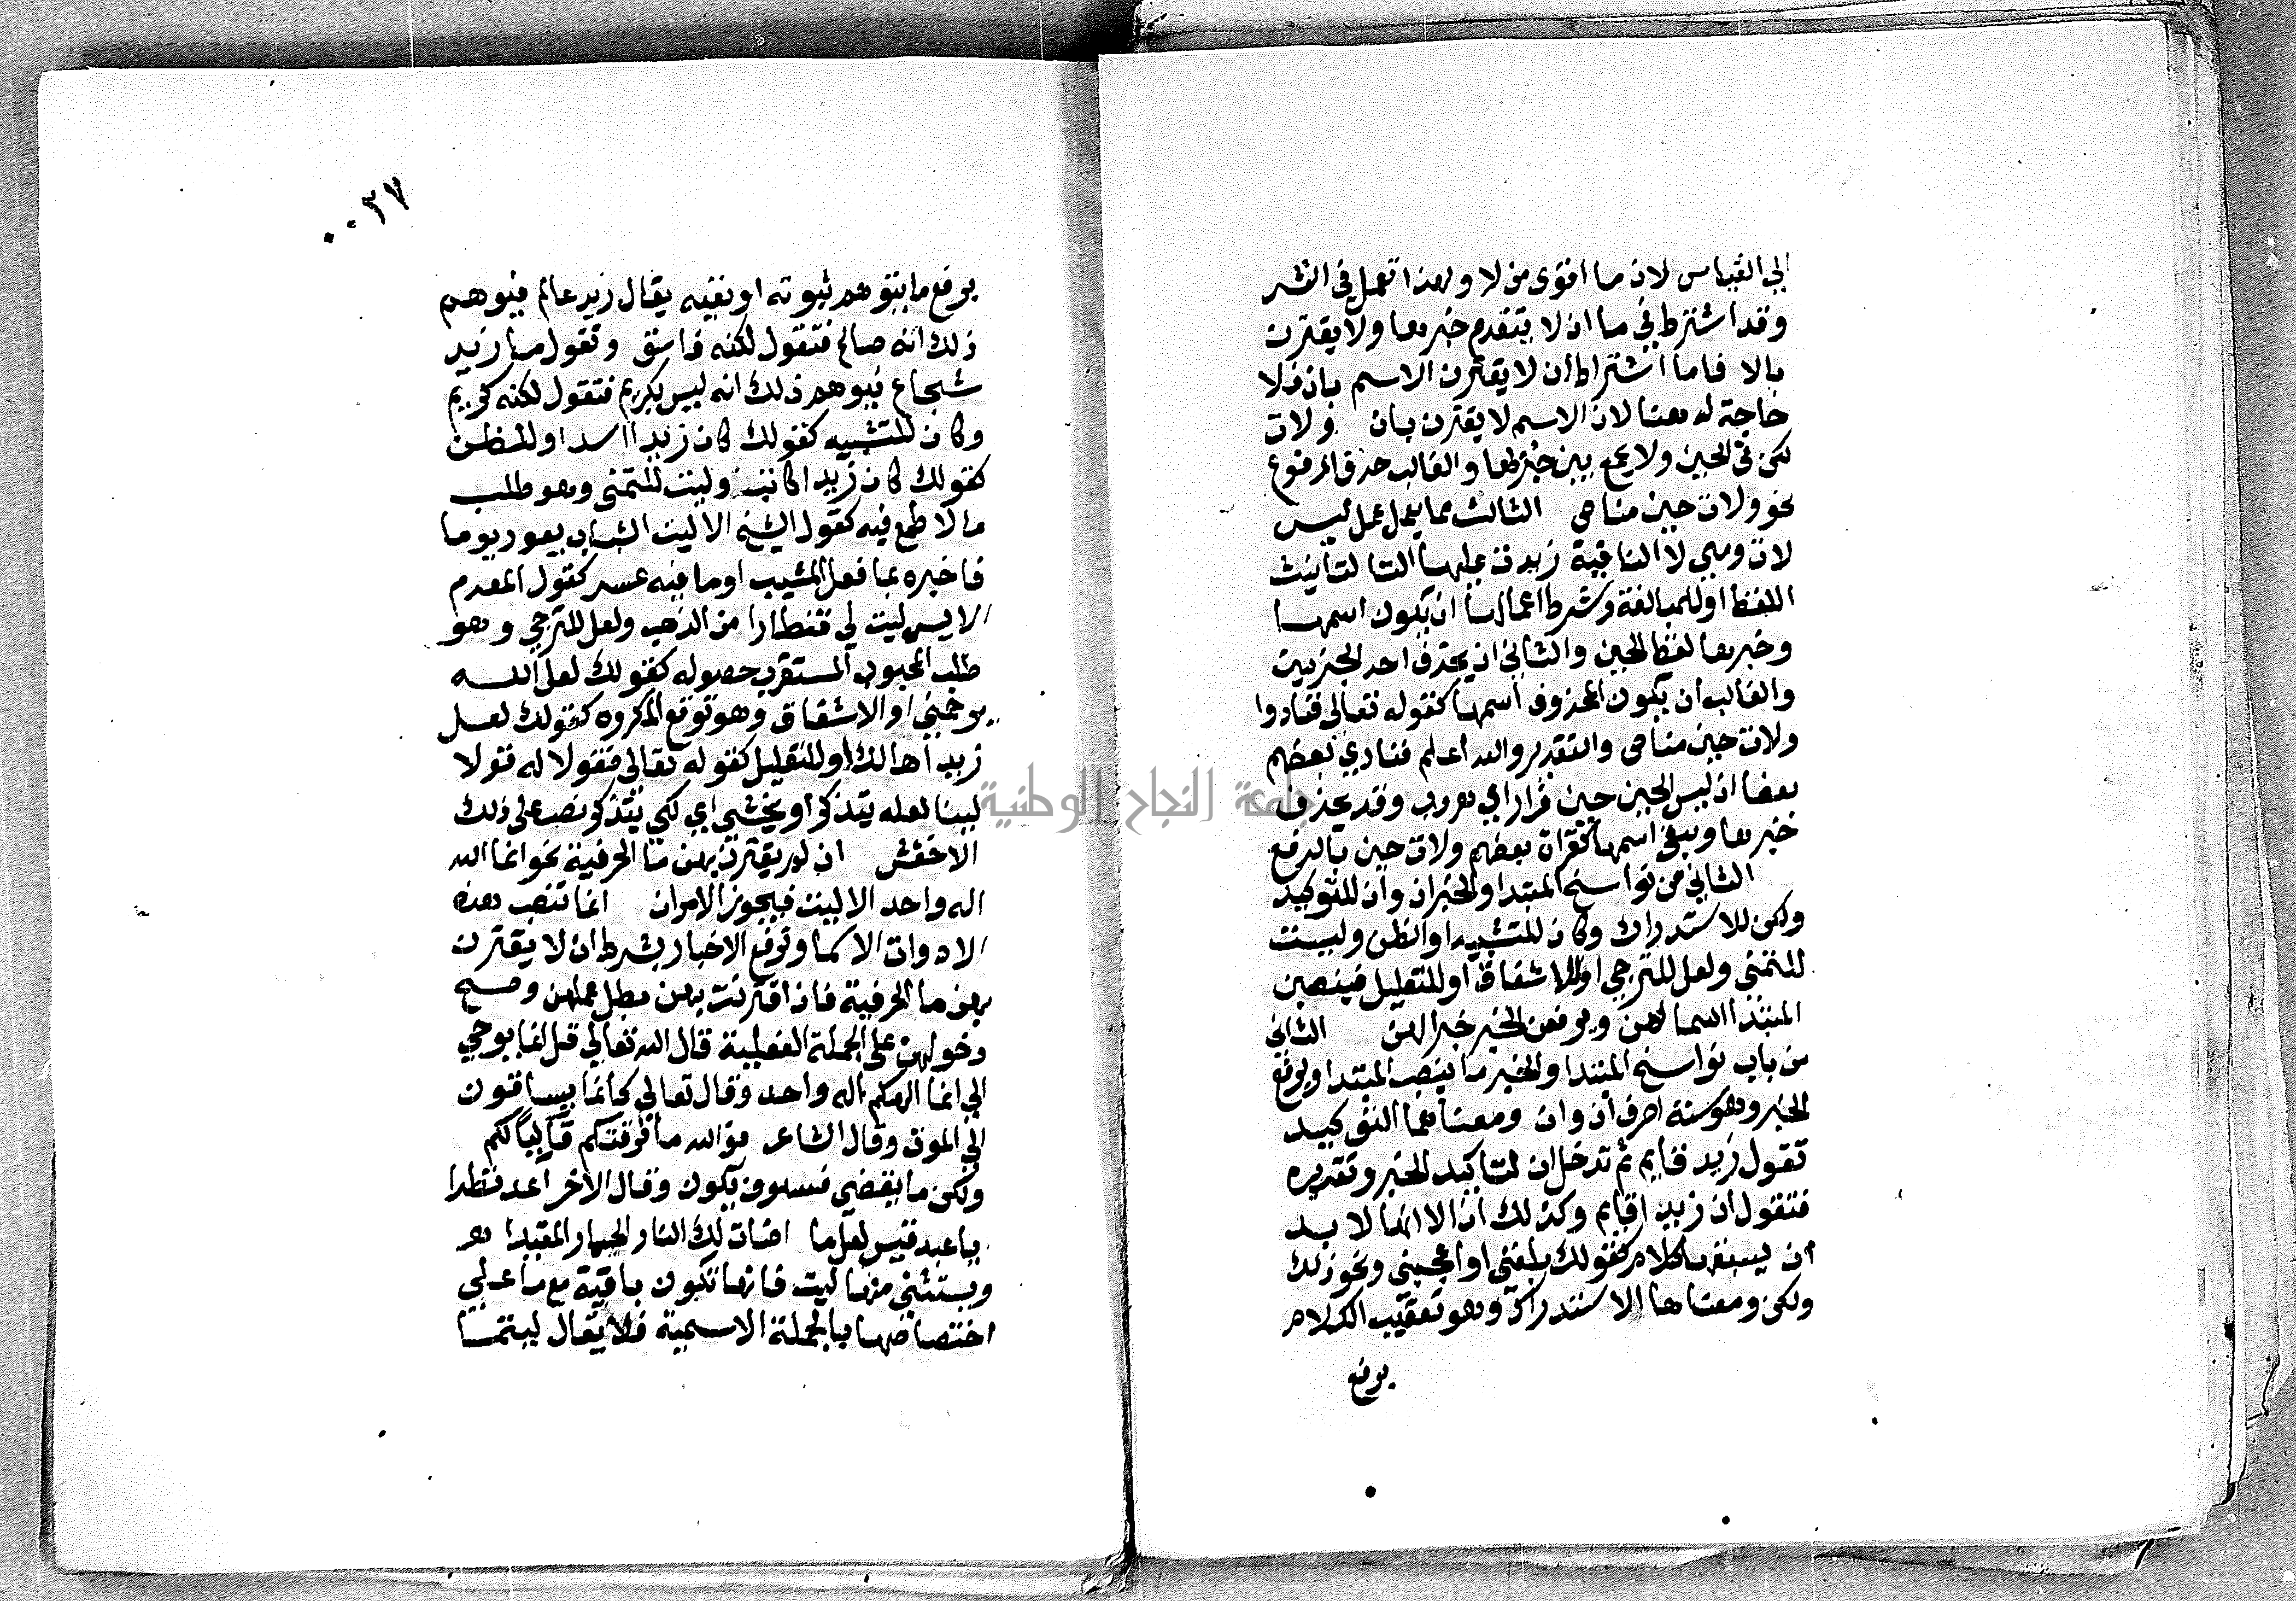 الي القياس لان ما اقوى من لا ولهذا تعمل في النثر
وقد اشترط في ما ان لا يتقدم خبرها ولا يقترن
بالا فاما اشتراط ان لا يقترن الاسم بان فلا
حاجة له هنا لان الاسم لا يقترن بان ولات
لكن في الحين ولا يجمع بين جزئيها والغالب حذف المرفوع
نحو ولات حين مناص الثالث مما يعمل عمل ليس
لات وهي لا النافية زيدت عليها التا لتانيث
اللفظ او للمبالغة وشرط اعمالها ان يكون اسمها
وخبرها لفظ الحين والثاني ان يحذف احد الجزيين
والغالب ان يكون المحذوف اسمها كقوله تعالي فنادوا
ولات حين مناص والتقدير والله اعلم فنادي بعضهم
بعضا ان ليس الحين حين فرار اي هروب وقد يحذف
خبرها ويبقي اسمها كقراة بعضهم ولات حين بالرفع
الثاني من نواسخ المبتدا والخبر ان وان للتوكيد
ولكن للاستدراك وكان للتشبيه او الظن وليت
للتمني ولعل للترجي او للاشفاق او للتعليل فينصبن
المبتدا اسما لهن ويرفعن الخبر خبرا لهن الثاني
من باب نواسخ المبتدا والخبر ما ينصب المبتدا ويرفع
الخبر وهو ستة احرف ان وان ومعناهما التوكيد
تقول زيد قايم ثم تدخل ان لتاكيد الخبر وتقريره
فتقول ان زيدا قايم وكذلك ان الا انها لا بد
ان يسبقها كلام كقولك بلغني او اعجبني ونحو ذلك
ولكن ومعناها الاستدراك وهو تعقيب الكلام
يرفع
٠٠٢٧
يرفع ما يتوهم ثبوته او نفيه يقال زيد عالم فيوهم
ذلك انه صالح فتقول لكنه فاسق وتقول ما زيد
شجاع فيوهم ذلك انه ليس بكريم فتقول لكنه كريم
وكان للتشبيه كقولك كان زيدا اسد او للظن
كقولك كان زيدا كاتب وليت للتمني وهو طلب
ما لا طمع فيه كقول الشيخ الا ليت الشباب يعود يوما
فاخبره بما فعل المشيب او ما فيه عسر كقول المعدم
الايس ليت لي قنطارا من الذهب ولعل للترجي وهو
طلب المحبوب المستقرب حصوله كقولك لعل الله
يرحمني او الاشفاق وهو توقع المكروه كقولك لعل
زيدا هالك او للتعليل كقوله تعالي فقولا له قولا
لينا لعله يتذكر او يخشي اي لكي يتذكر نص علي ذلك
الاخفش ان لم يقترن بهن ما الحرفية نحو انما الله
اله واحد الا ليت فيجوز الامران انما تنصب هذه
الادوات الاسما وترفع الاخبار بشرط ان لا يقترن
بهن ما الحرفية فان اقترنت بهن بطل عملهن وصح
دخولهن علي الجملة الفعلية قال الله تعالي قل انما يوحي
الي انما الهكم اله واحد وقال تعالي كانما يساقون
الي الموت وقال الشاعر فوالله ما فارقتكم قاليا لكم
ولكن ما يقضي فسوف يكون وقال الاخر اعد نظرا
يا عبد قيس لعلما اضات لك النار الحمار المقيدا
ويستثني منها ليت فانها تكون باقية مع ما علي
اختصاصها بالجملة الاسمية فلا يقال ليتما
جامعة النجاح الوطنية